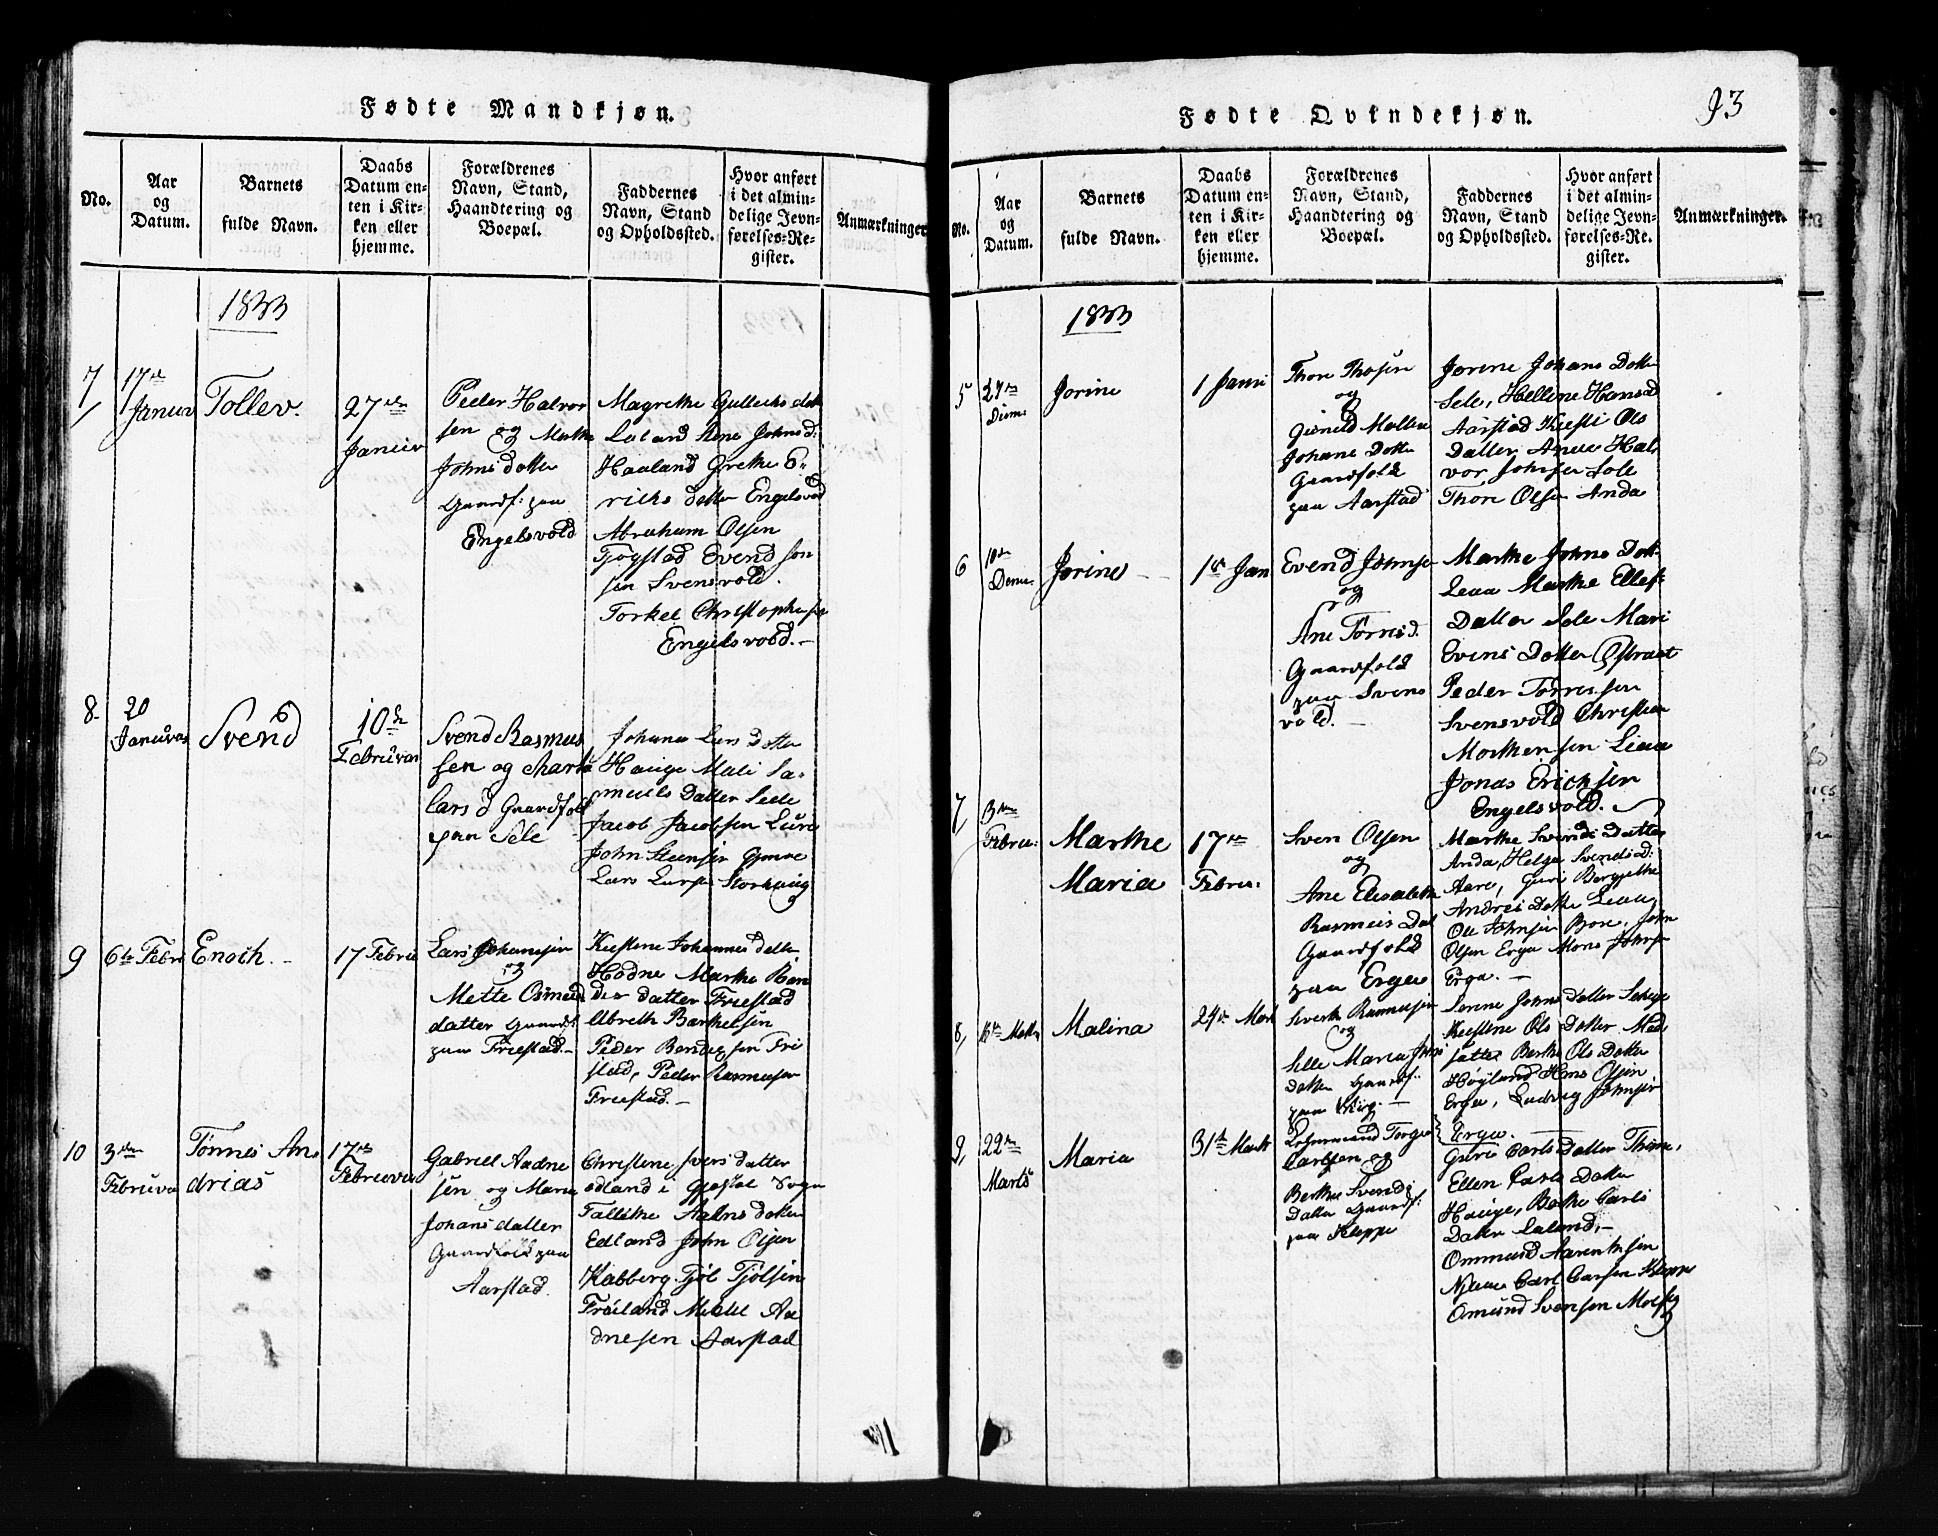 Fødte Mandkjøn.
No.
Aar
og
Datum.
Barnets
fulde Navn.
Daabs
Datum en-
ten i Kir-
ken eller
hjemme.
Forældrenes
Navn, Stand,
Haandtering og
Boepæl.
Faddernes
Navn, Stand
og Opholdssted.
Hvor anført
i det almin-
delige Jevn-
førelses-Re-
gister.
Anmærkninger
1833
7
17de
Januar
Tollev.
27de
Januar
Peder Halvor
sen og Marthe
Johns datter
Gaardf: paa
Engelsvold
Magrethe Gulleichs datt
Laland Ane Johns d:
Haaland Grethe E-
richs datter Engelsvold
Abraham Olsen
Tjøgstad Evend Jon
sen Svensvold.
Torkel Christophersen
Engelsvold.-
8.
20
Januvar
Svend
10de
Februvar
Svend Rasmus
sen og Martha
Lars d Gaardfolk
paa Sele
Johanne Lars datter
Hauge Mali Sa-
muels Datter Sele
Jacob Jacobsen
John Steensen
Lars Larsen Storhaug
9
6te Febr
Enoch. -
17 Februar
Lars Johannesen
og
Mette Osmund
datter Gaardf:
paa Friestad.-
Kirstene Johannes datter
Hodne Marthe Ben
dix datter Friestad
Ubreth Barthelsen
Peder Bendixsen Fri
stad, Peder Rasmusen
Friestad.-
10
3die
Februva
Tønnes An
drias
17de
Februvar
Gabriel Aadne
sen og Maria
Johans datter
Gaardfolk paa
Aarstad.
Christene Ivers datter
odland i Gjestal Sogn
Tallethe Aadns datter
Edland John Olsen
Kabberg Tjøl Tjølsen
Frøiland Mikkel Aa
dnesen Aarstad
Fødte Qvindekjøn.
93
No.
Aar
og
Datum.
Barnets
fulde Navn.
Daabs
Datum en-
ten i Kir-
ken eller
hjemme.
Forældrenes
Navn, Stand,
Haandtering og
Boepæl.
Faddernes
Navn, Stand
og Opholdssted.
Hvor anført
i det almin-
delige Jevn-
førelses-Re-
gister.
Anmærkninger.
1833
5
27de
Jorine
1 Janu
Thore Thosen
og
Malene
Johane Datter
Gaardfolk
paa Aarstad
Jorine Johans Datter
Sele, Hellene Hans d
Aarstad Kirsti Ols
Datter Anda Hal
vor Johnsen Sele
Thore Olsen Anda
6
10de
Jorine
1te Jan
Evend Johnsen
og
Ane Tørris d.
Gaardfolk
paa Svens
vold.-
Marthe Johns Datt.
Leaa Marthe Ellef-
Datter Sele Mari
Evens Datter Østraat
Peder Torresen
Svensvold Christian
Morthensen Leaa
Jonas Erichsen
Engelsvold.
7
3die
Februa:
Marthe
Maria
17de
Febru:
Sven Olsen
og
Ane Elisabeth
Rasmus Dat
Gaardfolk
paa Erga
Marthe Svends Datter
Anda, Helga Svends D:
Aare, Guri Bergitthe
Andreas Datter Leaa
Ole Johnsen Bore, John
Olsen Erga Mons Johnsen
Erga. -
8,
Malina
24de Mart
Sivert Rasmusen
og
Sille Maria Johns
Datter Gaardf:
paa Erga. -
Serine Johns Datter
Kirstene Ols Datter
Berthe Ols Datter
Høyland Hans Olsen
Erga, Ludvig Johnsen
Erga. -
9,
22de
Marts
Maria
31te Marts
Torger
Carlsen og
Berthe Svends
Datter Gaardf:
paa Kleppe
Guri Carls Datter Thime,
Ellen Carls Datter
Hauge, Berthe Carls
Datter Laland,-
Ommund Aarentsen
Njaae Carl Carsen Kleppe
Omund Svensen